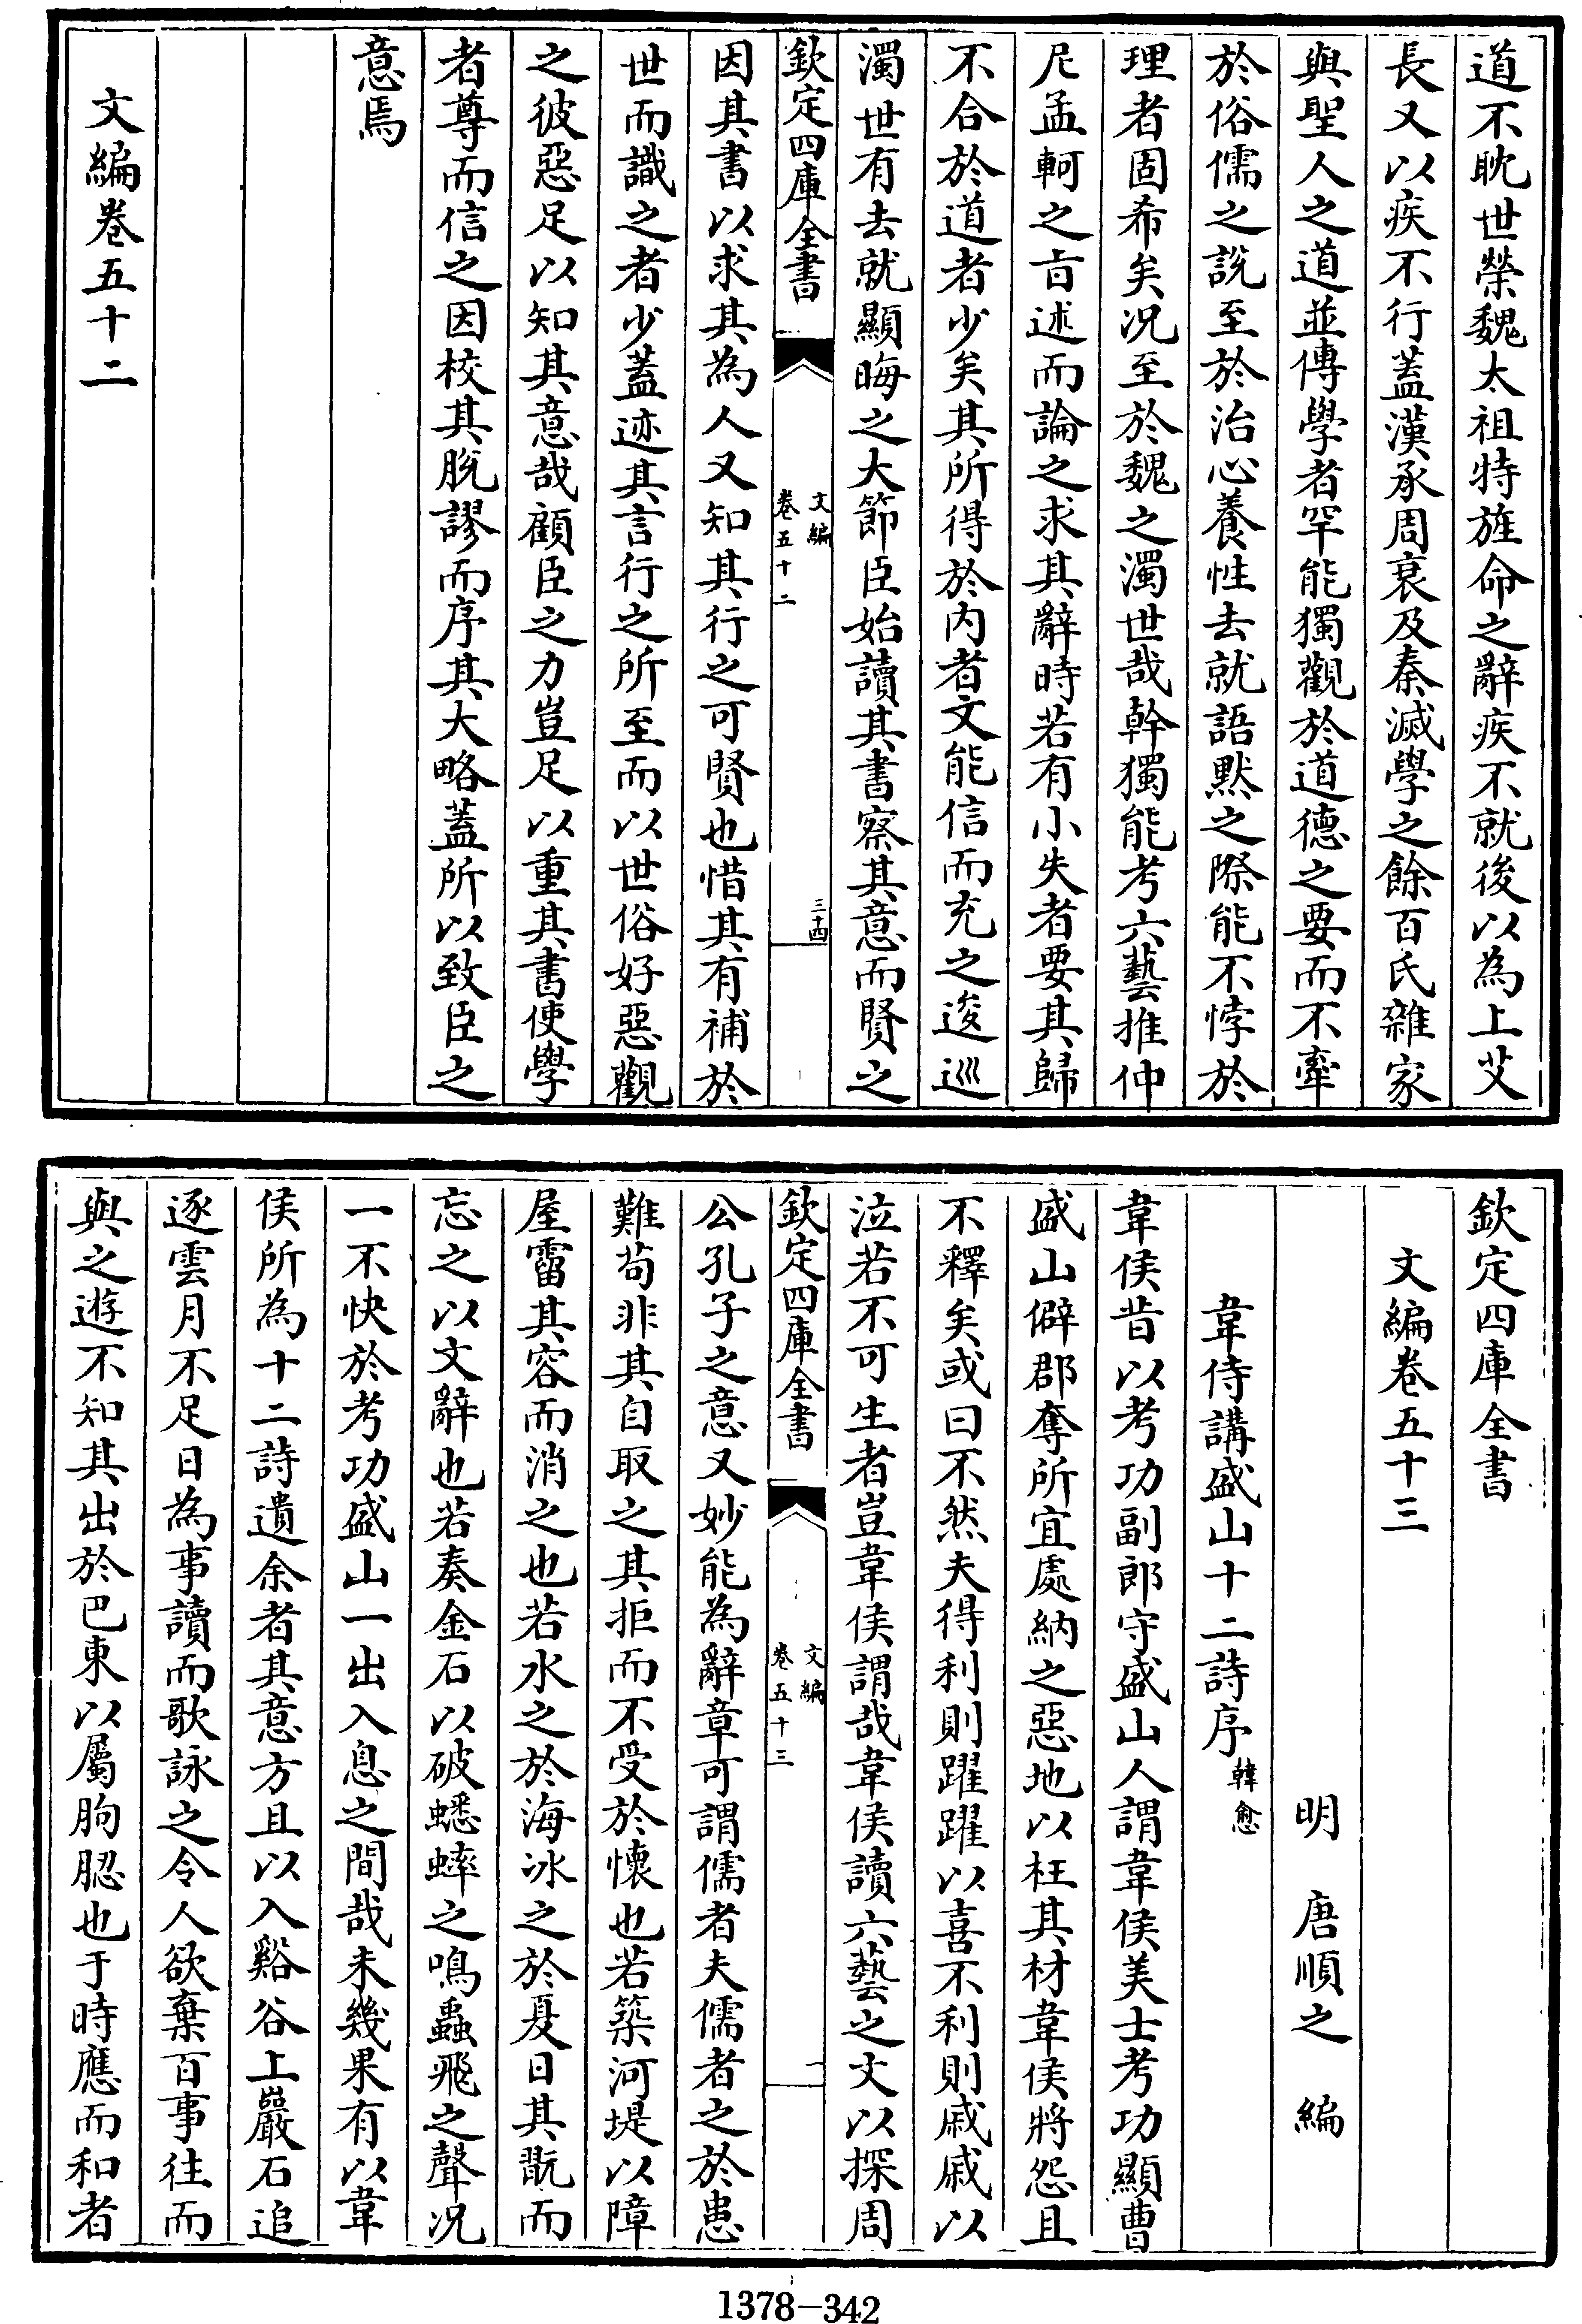 道不眈世榮魏太祖特旌命之辭疾不就後以為上艾
長又以疾不行蓋漢承周衰及秦滅學之餘百氏雜家
與聖人之道並傳學者罕能獨觀於道德之要而不牽
於俗儒之說至於治心養性去就語默之際能不悖於
理者固希矣況至於魏之濁世哉幹獨能考六藝推仲
尼孟軻之㫖述而論之求其辭時若有小失者要其歸
不合於道者少矣其所得於内者文能信而充之逡巡
濁世有去就顯晦之大節臣始讀其書察其意而賢之
欽定四庫全書
文編
卷五十二
三十四
因其書以求其為人又知其行之可賢也惜其有補於
世而識之者少蓋迹其言行之所至而以世俗好惡觀
之彼惡足以知其意哉顧臣之力豈足以重其書使學
者尊而信之因校其脫謬而序其大略蓋所以致臣之
意焉
文編卷五十二
欽定四庫全書
文編卷五十三
明 唐順之 編
韋侍講盛山十二詩序韓愈
韋侯昔以考功副郎守盛山人謂韋侯美士考功顯曹
盛山僻郡奪所宜處納之惡地以枉其材韋侯將怨且
不釋矣或曰不然夫得利則躍躍以喜不利則戚戚以
泣若不可生者豈韋侯謂哉韋侯讀六藝之文以探周
欽定四庫全書
文編
卷五十三
一
公孔子之意又妙能為辭章可謂儒者夫儒者之於患
難茍非其自取之其拒而不受於懷也若築河堤以障
屋霤其容而消之也若水之於海冰之於夏日其翫而
忘之以文辭也若奏金石以破蟋蟀之鳴蟲飛之聲況
一不快於考功盛山一出入息之間哉未幾果有以韋
侯所為十二詩遺余者其意方且以入谿谷上巖石追
逐雲月不足日為事讀而歌詠之令人欲棄百事往而
與之遊不知其出於巴東以屬朐䏰也于時應而和者
1378—342